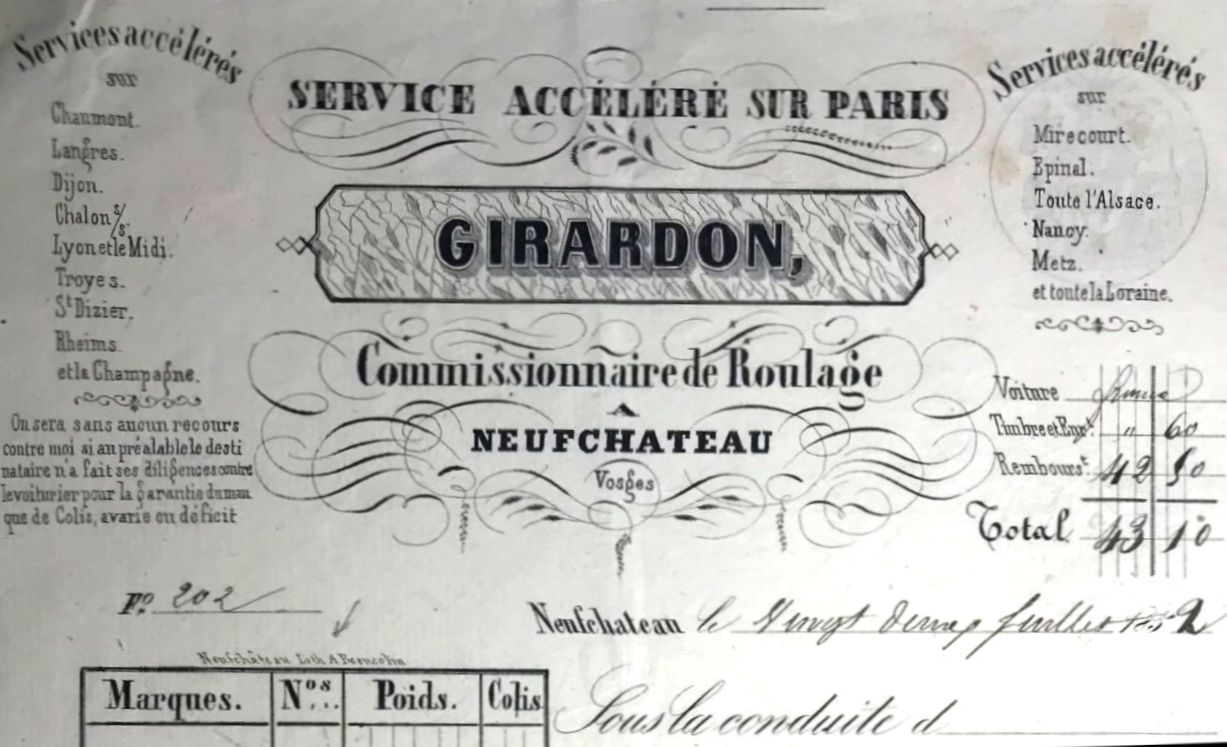 Services accélérés
sur
Chaumont.
Langres.
Dijon.
Chalon s/s.
Lyon et le Midi.
Troyes.
St Dizier.
Rheims.
et la Champagne.
On sera sans aucun recours
contre moi si au préalable le desti
nataire n'a fait ses diligences contre
le voiturier pour la garantie du man
que de Colis, avarie ou déficit
SERVICE ACCÉLÉRÉ SUR PARIS
GIRARDON,
Commissionnaire de Roulage
A
NEUFCHATEAU
Vosges
Services accélérés
sur
Mirecourt.
Epinal.
Toute l'Alsace.
Nancy.
Metz.
et toute la Loraine.
Voiture
Timbre et Enrt. " 60
Rembourst. 42 50
Total 43 10
Fo. 202
Neufchateau le Vingt deux juillet 1852
Neufchâteau Lith. A
Marques. Nos... Poids. Colis
Sous la conduite d